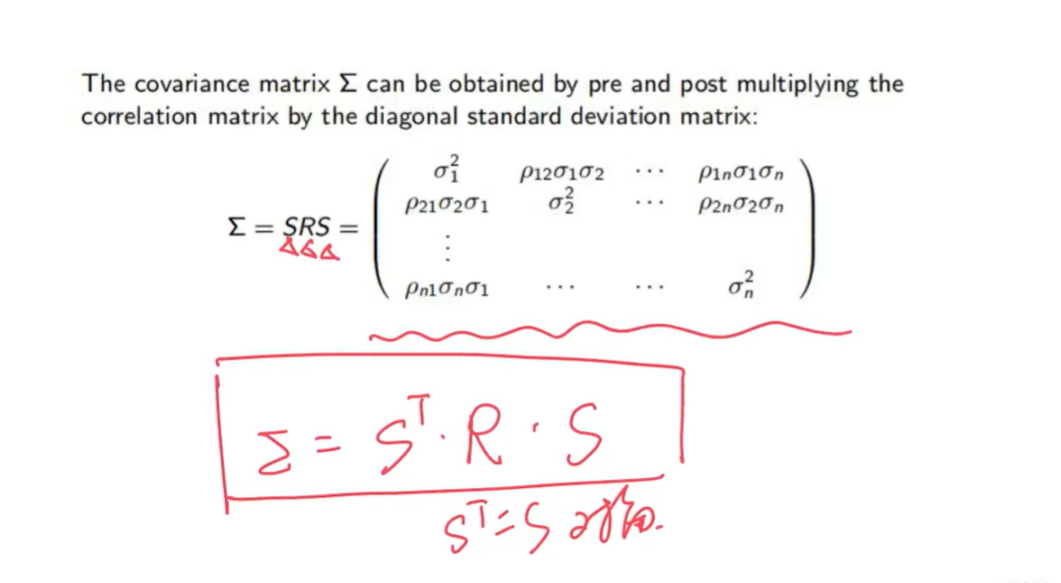 The covariance matrix Σ can be obtained by pre and post multiplying the
correlation matrix by the diagonal standard deviation matrix:
σ₁² ρ₁₂σ₁σ₂ ⋯ ρ₁ₙσ₁σₙ
ρ₂₁σ₂σ₁ σ₂² ⋯ ρ₂ₙσ₂σₙ
Σ = SRS =
⋮
ρₙ₁σₙσ₁ ⋯ ⋯ σₙ²
Σ = Sᵀ · R · S
Sᵀ = S